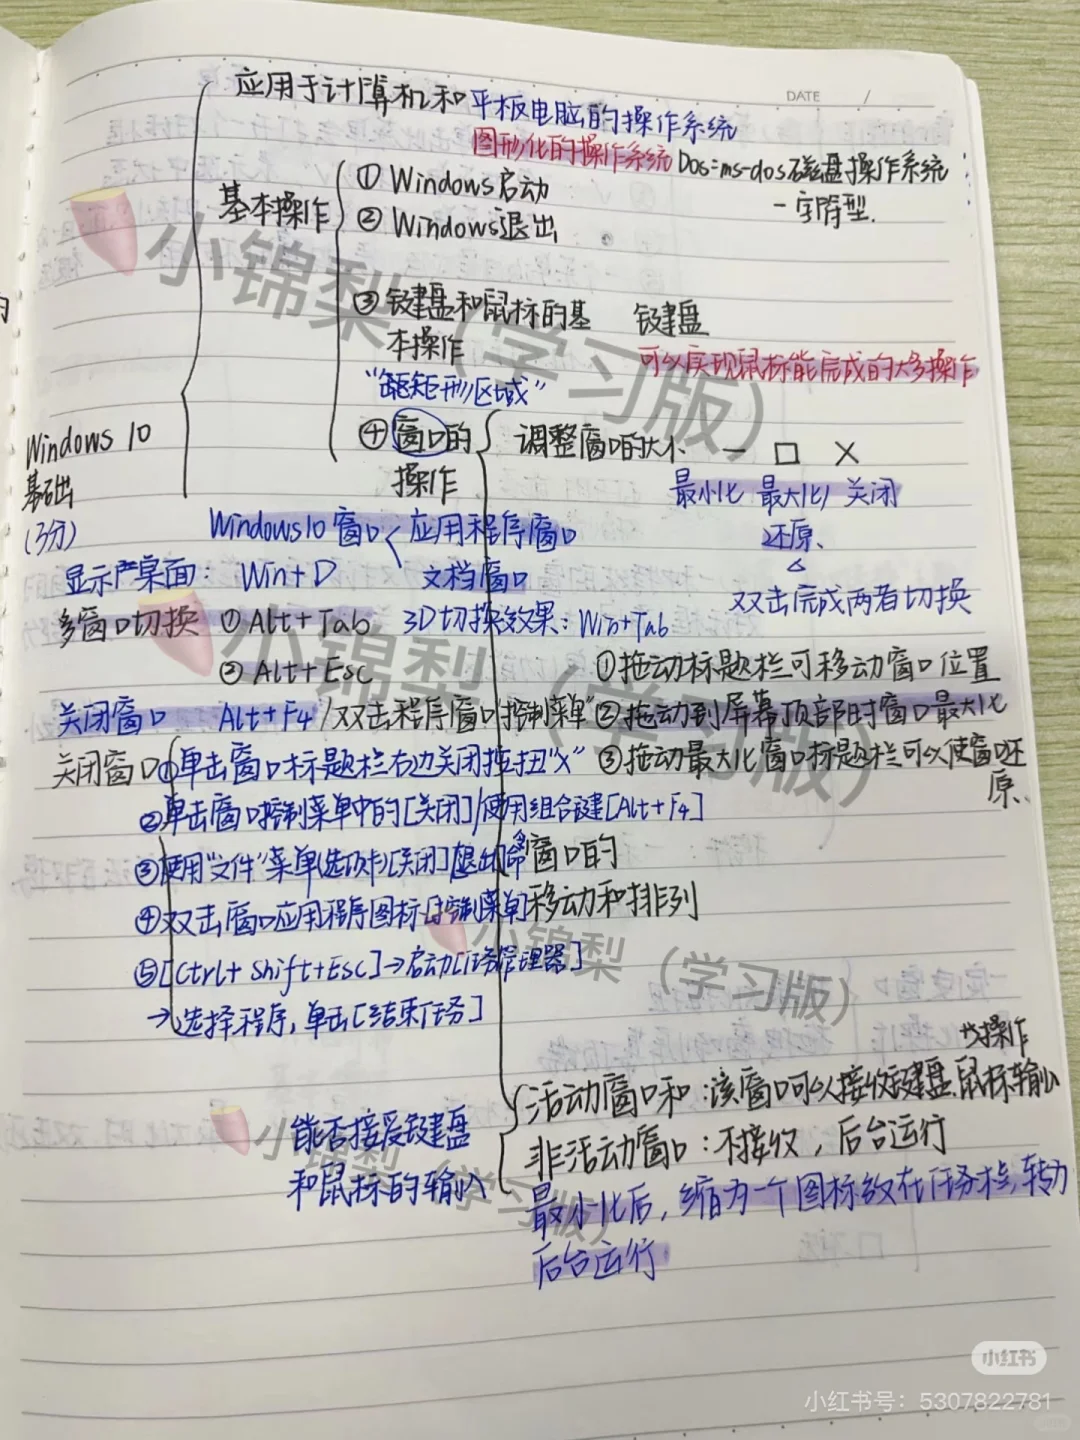 DATE /
应用于计算机和平板电脑的操作系统
图形化的操作系统 Dos:ms-dos磁盘操作系统
一字符型.
基本操作
① Windows启动
② Windows退出
③ 键盘和鼠标的基
本操作
键盘
可以实现鼠标能完成的大多操作
矩形区域”
④ 窗口的
操作
调整窗口的大小 — □ ×
最小化 最大化/ 关闭
还原、
双击完成两者切换
Windows 10
基础
(3分)
Windows10 窗口
应用程序窗口
文档窗口
显示桌面: Win+D
多窗口切换 ① Alt+Tab 3D切换效果: Win+Tab
② Alt+Esc
关闭窗口 Alt+F4/双击程序窗口“控制菜单”
①拖动标题栏可移动窗口位置
②拖动到屏幕顶部时窗口最大化
③拖动最大化窗口标题栏可以使窗口还
原.
关闭窗口 ①单击窗口标题栏右边关闭按扭“X”
②单击窗口控制菜单中的[关闭]/使用组合键[Alt+F4]
③使用“文件”菜单(选项卡)[关闭]/退出命令
④双击窗口应用程序图标[控制菜单]
⑤[Ctrl+Shift+Esc]→启动[任务管理器]
→选择程序,单击[结束任务]
窗口的
移动和排列
能否接受键盘
和鼠标的输入
操作
活动窗口和:该窗口可以接收键盘、鼠标输入
非活动窗口:不接收,后台运行
最小化后,缩为一个图标放在任务栏,转为
后台运行
小锦梨(学习版)
小锦梨(学习版)
小锦梨(学习版)
小锦梨(学习版)
小红书
小红书号:5307822781